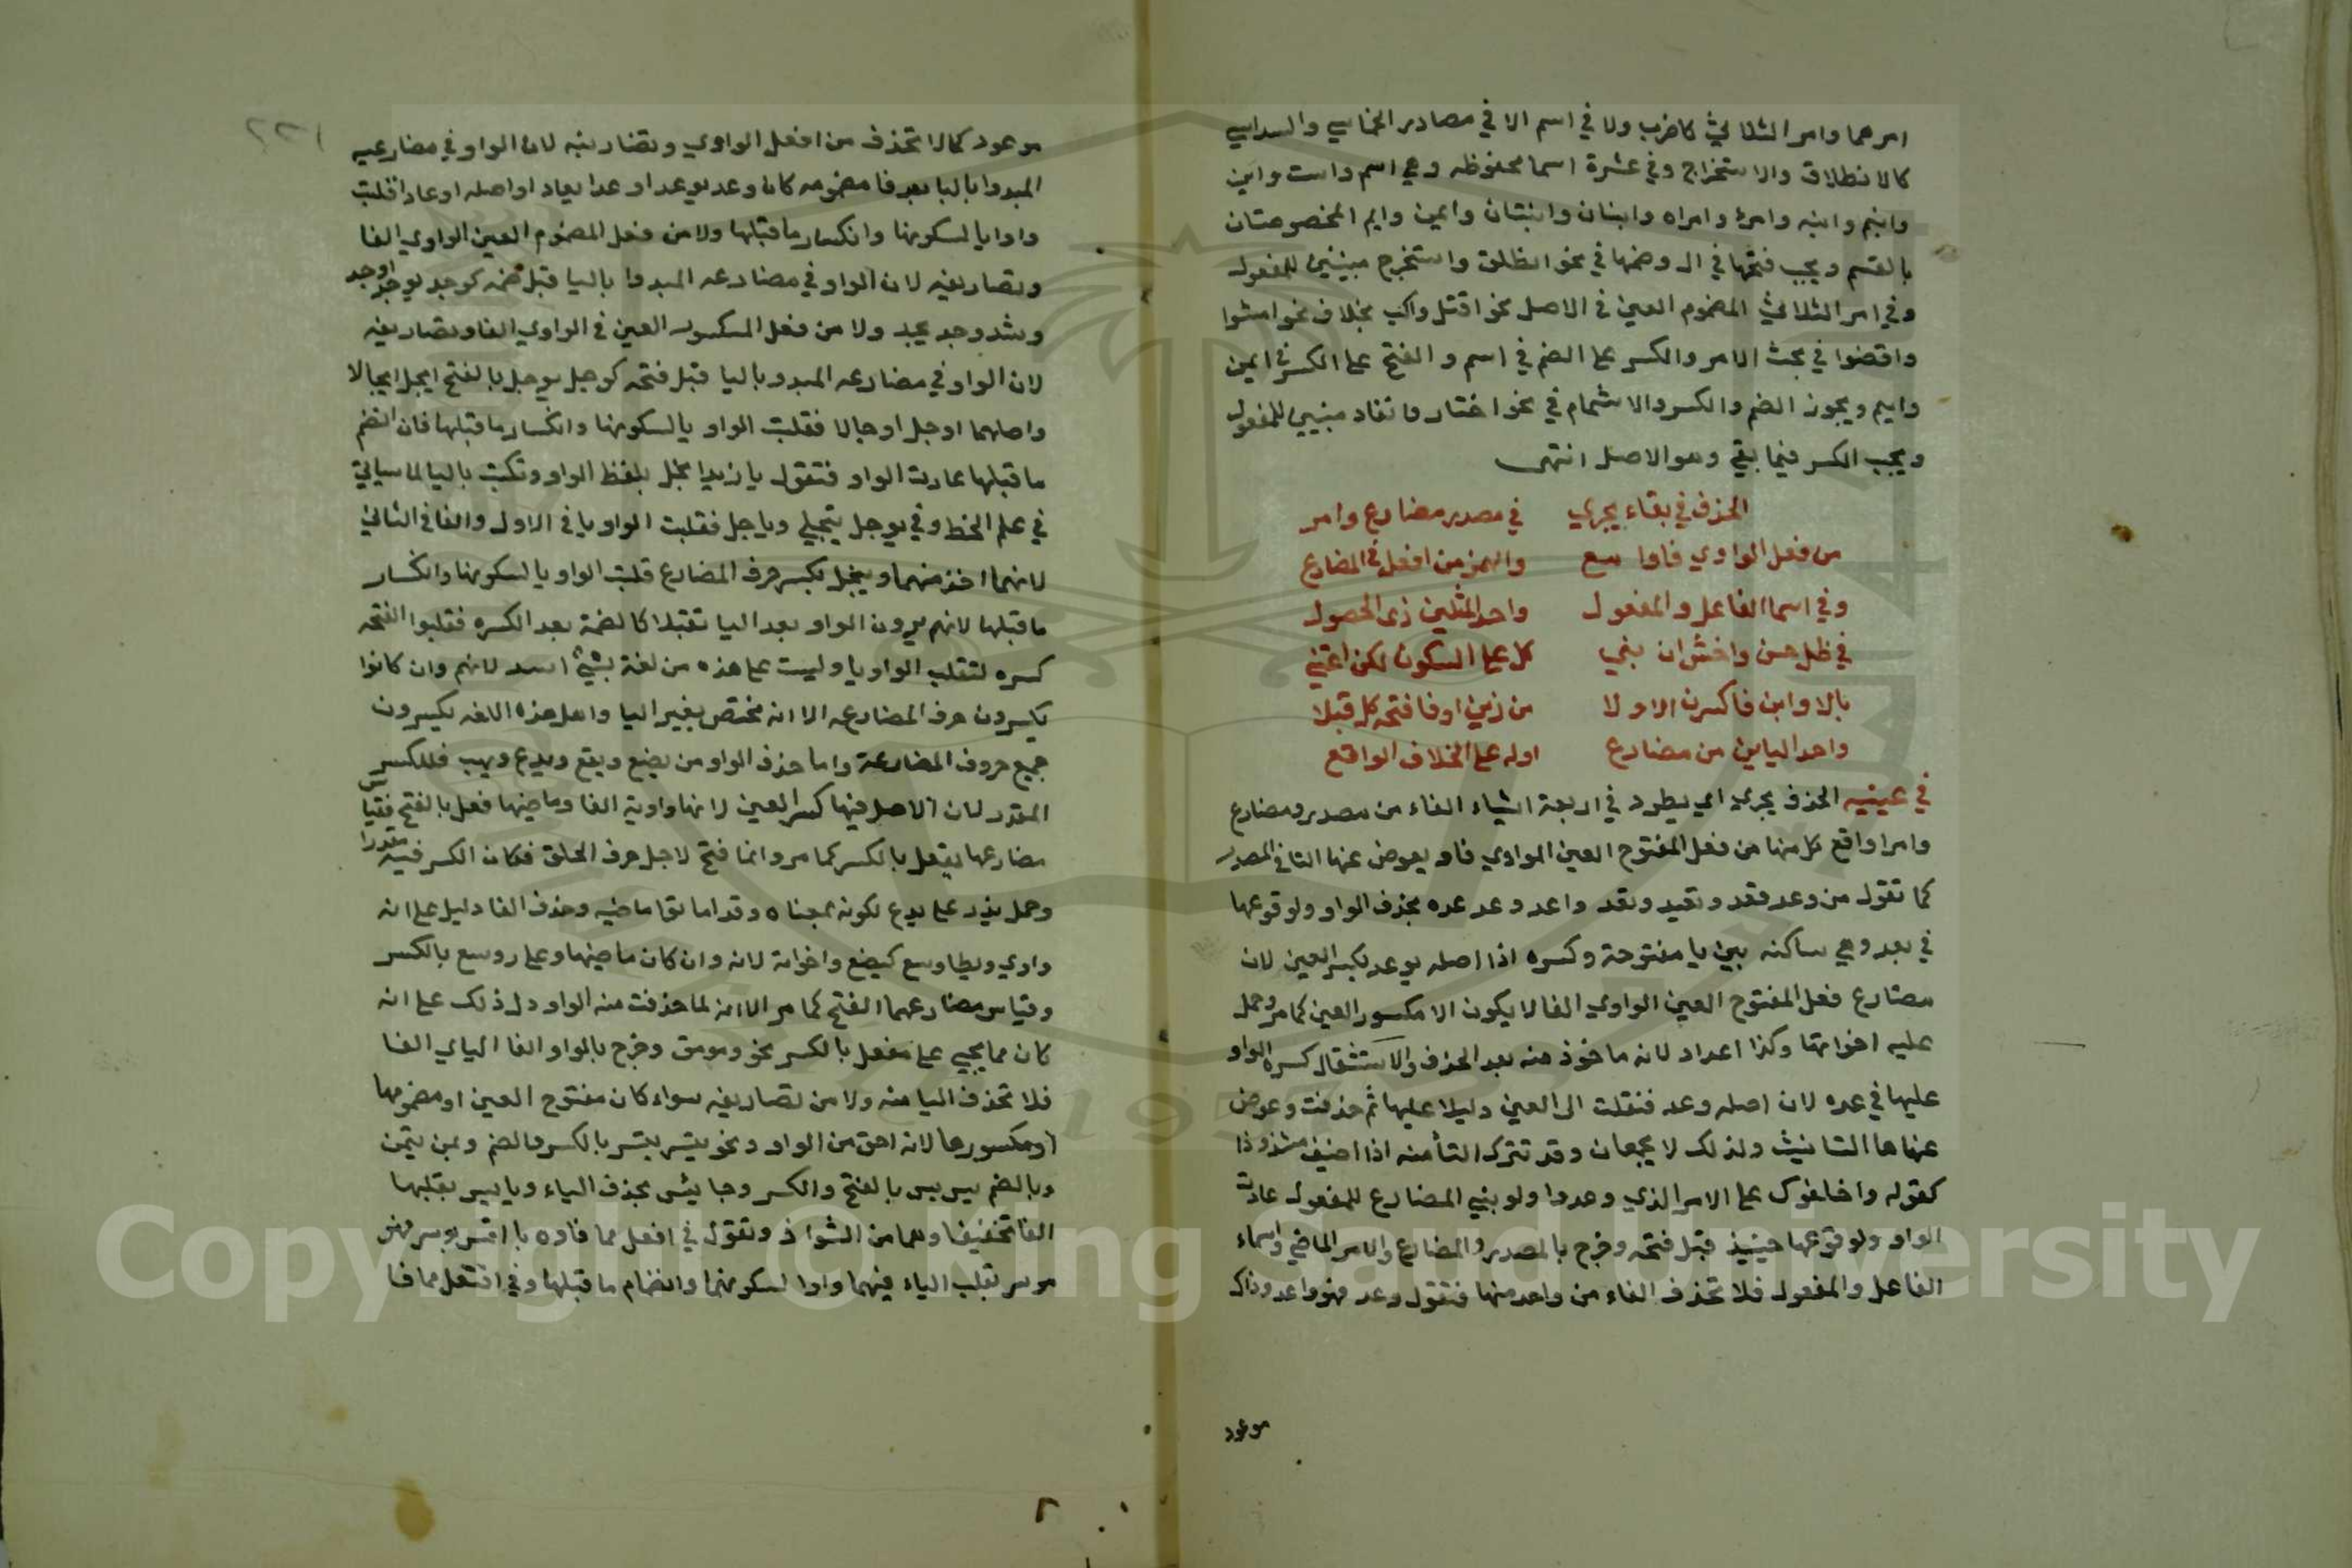 امرهما وامر الثلاثي كاضرب ولا في اسم الا في مصادر الخماسي والسداسي
كالانطلاق والاستخراج وفي عشرة اسما محفوظه وهي اسم واست وابن
وابنم وابنه وامرء وامراه وابنان وابنتان وايمن وايم المخصوصتان
بالقسم ويجب فتحها في ال وضمها في نحو انطلق واستخرج مبنيين للمفعول
وفي امر الثلاثي المضموم العين في الاصل نحو اقتل واكتب بخلاف نحو امشوا
واقضوا في بحث الامر والكسر على الضم في اسم و الفتح على الكسر في ايمن
وايم ويجوز الضم والكسر والاشمام في نحو اختار وانقاد مبنيين للمفعول
ويجب الكسر فيما بقي وهو الاصل انتهى
الحذف في بقاء يجري في مصدر مضارع وامر
من فعل الواوي فاوا سع والهمز من افعل في المضارع
وفي اسما الفاعل والمفعول واحد المثلين ذى الحصول
في ظل حسن واخش ان بني كل على السكون لكن اعتني
بالاوابن فاكسرن الاولا من زمني اوفا فتحه كل قبلا
واحد اليابن من مضارع اوله على الخلاف الواقع
في عينيه الحذف يجري اي يطرد في اربعة اشياء الفاء من مصدر ومضارع
وامر اواقع كل منها من فعل المفتوح العين الواوي فاو يعوض عنها التا في المصدر
كما تقول من وعد فقد وتقيد ونقد واعد وعد عده بحذف الواو ولوقوعها
في يعد وهي ساكنه بين يا مفتوحة وكسره اذا اصله يوعد بكسر العين لان
مضارع فعل المفتوح العين الواوي الفا لا يكون الا مكسور العين كما مر وحمل
عليه اخواتها وكذا اعداد لانه ماخوذ منه بعد الحذف والاستثقال كسرة الواو
عليها في عده لان اصله وعد فنقلت الى العين دليلا عليها ثم حذفت وعوض
عنها ها التانيث ولذلك لا يجمعان وقد تترك التا منه اذا اضيف شذوذا
كقوله واخلفوك على الامر الذي وعدوا ولو بني المضارع للمفعول عادت
الواو ولوقوعها حينيذ قبل فتحه وخرج بالمصدر والمضارع والامر الماضي واسماء
الفاعل والمفعول فلا تحذف الفاء من واحد منها فتقول وعد فهو واعد وذاك
موعود
موعود كما لا تحذف من افعل الواوي وتصاريفه لان الواو في مضارعيه
المبدوا باليا بعد فا مضمومه كان وعد يوعد او عدا يعاد او اصله اوعادا قلبت
واوا يا لسكونها وانكسار ما قبلها ولا من فعل المضموم العين الواوي الفا
وتصاريفه لان الواو في مضارعه المبدوا باليا قبل ضمه كوجد يوجد اوجد
وشذ وجد يجد ولا من فعل المكسور العين في الواوي الفا وتصاريفه
لان الواو في مضارعه المبدو باليا قبل فتحه كوجل يوجل بالفتح ايجل ايجالا
واصلهما اوجل اوجالا فقلبت الواو يا لسكونها وانكسار ما قبلها فان انضم
ما قبلها عادت الواو فتقول يا زيد ايجل بلفظ الواو وتكتب باليا لما سياتي
في علم الخط وفي يوجل يتجيلي وياجل فقلبت الواو يا في الاول والفا في الثاني
لانهما اخف منهما وييجل بكسر حرف المضارع قلبت الواو يا لسكونها وانكسار
ما قبلها لانهم يرون الواو بعد اليا ثقيلا كالضمة بعد الكسره فقلبوا الفتحه
كسره لتنقلب الواو يا وليست على هذه من لغة بشيئ اسد لانهم وان كانوا
يكسرون حرف المضارعه الا انه مختص بغير اليا واهل هذه اللغه يكسرون
جميع حروف المضارعة واما حذف الواو من يضع ويقع ويدع ويهب فللكسر
المقدر لان الاصل فيها كسر العين لانها واوية الفا وماضيها فعل بالفتح فقياس
مضارعها يفعل بالكسر كما مر وانما فتح لاجل حرف الحلق فكان الكسر فيه مقدرا
وحمل يذر على يدع لكونه بمعناه وقد اماتوا ماضيه وحذف الفا دليل على انه
واوي ويطا ويسع كيضع واخواته لانه وان كان ماضيها وعلى روسع بالكسر
وقياس مضارعهما الفتح كما مر الا انه لما حذفت منه الواو دل ذلك على انه
كان مما يجي على مفعل بالكسر نحو ومومق وخرج بالواو الفا اليائي الفا
فلا تحذف اليا منه ولا من تصاريفه سواء كان مفتوح العين او مضمومها
او مكسورها لانه اخف من الواو ونحو ييسر يبتسر بالكسر والضم ويمن يتيمن
وبالضم ييس يبس بالفتح والكسر وجا يئس بحذف الياء ويا ييس بقلبها
الفا تخفيفا وهما من الشواذ وتقول في افعل مما فاوه يا ايسر يوسر فهو
موسر بقلب الياء فيهما واوا لسكونهما وانضمام ما قبلها وفي افتعل مما فا
Copyright © King Saud University